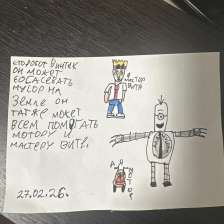 ЭТО РОБОТ ВИНТИК
ОН МОЖЕТ
ВСАСЫВАТЬ
МУСОР НА
Земле ОН
ТАГЖЕ МОЖЕТ
ВСЕМ ПОМОГАТЬ
МОТОРУ И
МАСТЕРУ ВИТЕ
Я МАСТЕР
ВИТЯ
А Я
МОТОР
27.02.26.